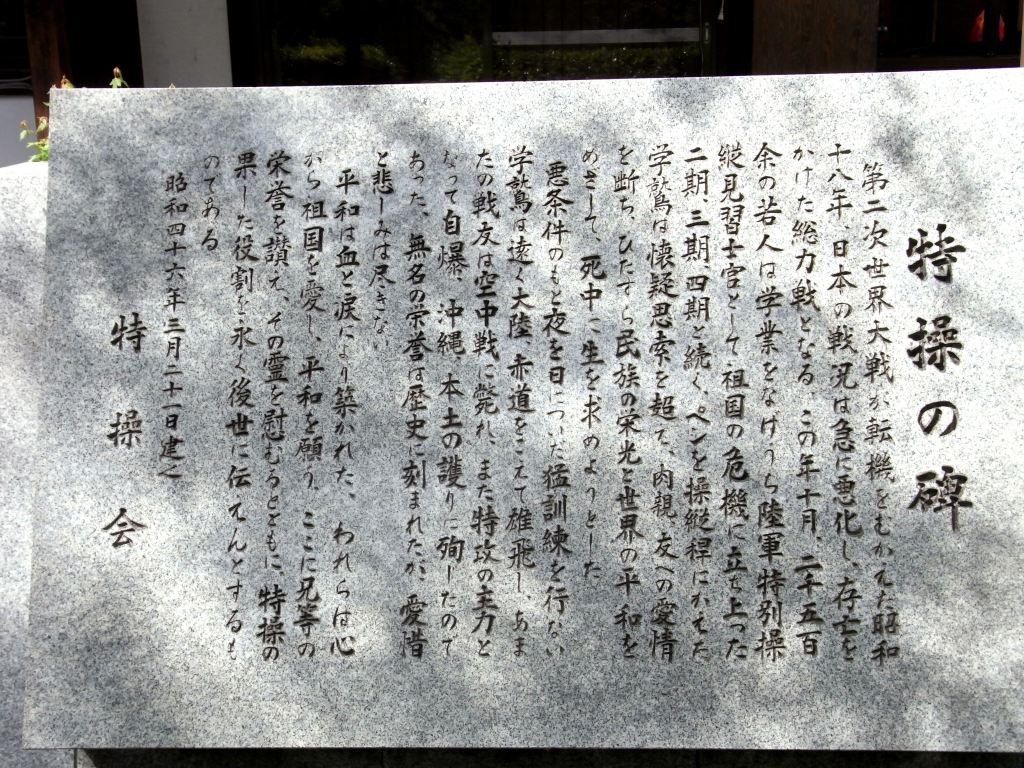 特操の碑
第二次世界大戦が転機をむかえた昭和
十八年、日本の戦況は急に悪化し、存亡を
かけた総力戦となる。この年十月、二千五百
余の若人は学業をなげうち陸軍特別操
縦見習士官として祖国の危機に立ち上った
二期、三期、四期と続く、ペンを操縦桿にかえた
学鷲は懐疑思索を超て、肉親、友への愛情
を断ち、ひたすら民族の栄光と世界の平和を
めざして、死中に生を求めようとした
悪条件のもと夜を日についだ猛訓練を行ない
学鷲は遠く大陸、赤道をこえて雄飛し、あま
たの戦友は空中戦に斃れ、また特攻の主力と
なって自爆、沖縄、本土の護りに殉じたので
あった、無名の栄誉は歴史に刻まれたが、愛惜
と悲しみは尽きない
平和は血と涙により築かれた、われらは心
から祖国を愛し、平和を願う、ここに兄等の
栄誉を讃え、その霊を慰むるとともに、特操の
果した役割を永く後世に伝えんとするも
のである
昭和四十六年三月二十一日建之
特操会